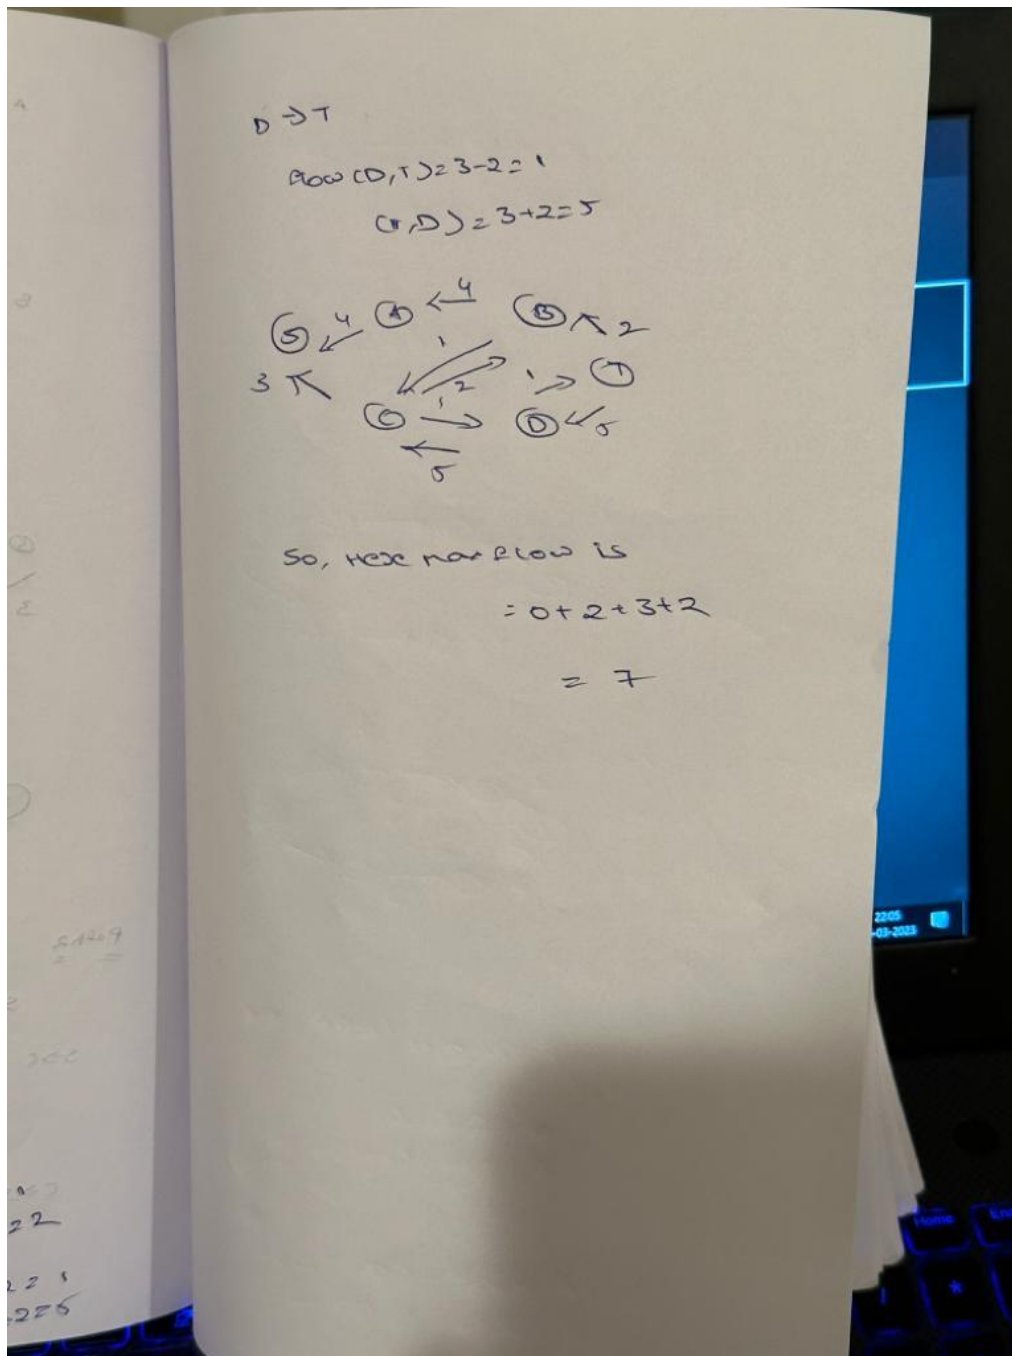 D → T
flow (D,T) = 3-2 = 1
(T,D) = 3+2 = 5
4
S 4 A B 2
1
3 2 1 T
C 1 D 5
5
So, Here max flow is
= 0+2+3+2
= 7
22:05
-03-2023
Home
End